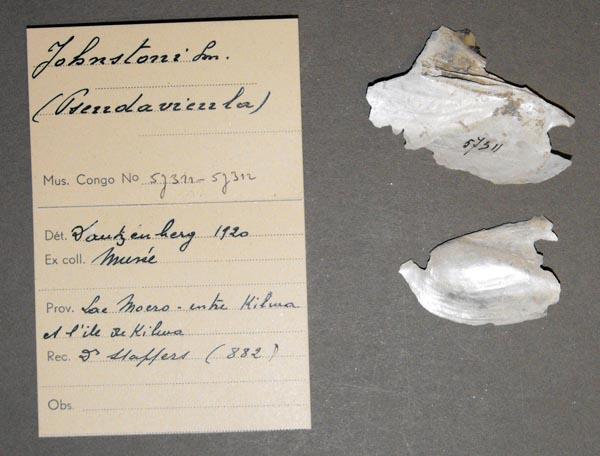 Johnstoni Sm.
(Pseudavicula)
Mus. Congo No 57311-57312
Dét. Dautzenberg 1920
Ex coll. Musée
Prov. Lac Moero - entre Kilwa
et l'île de Kilwa
Rec. Dr Stappers (882)
Obs.
57311